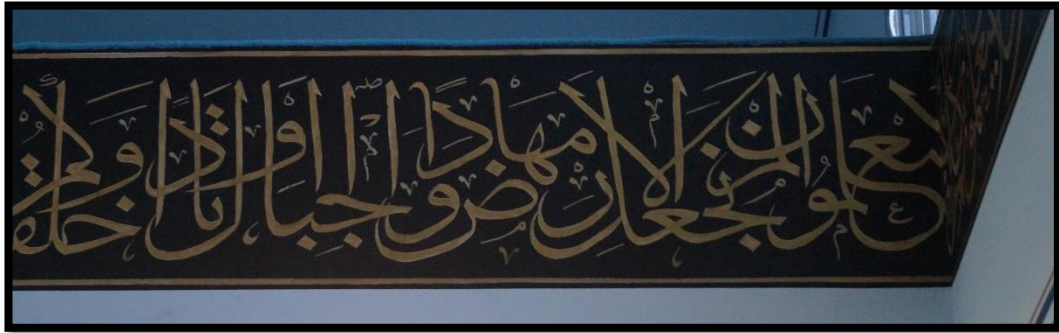 سيعلمون ألم نجعل الأرض مهادا والجبال أوتادا وخلقناكم